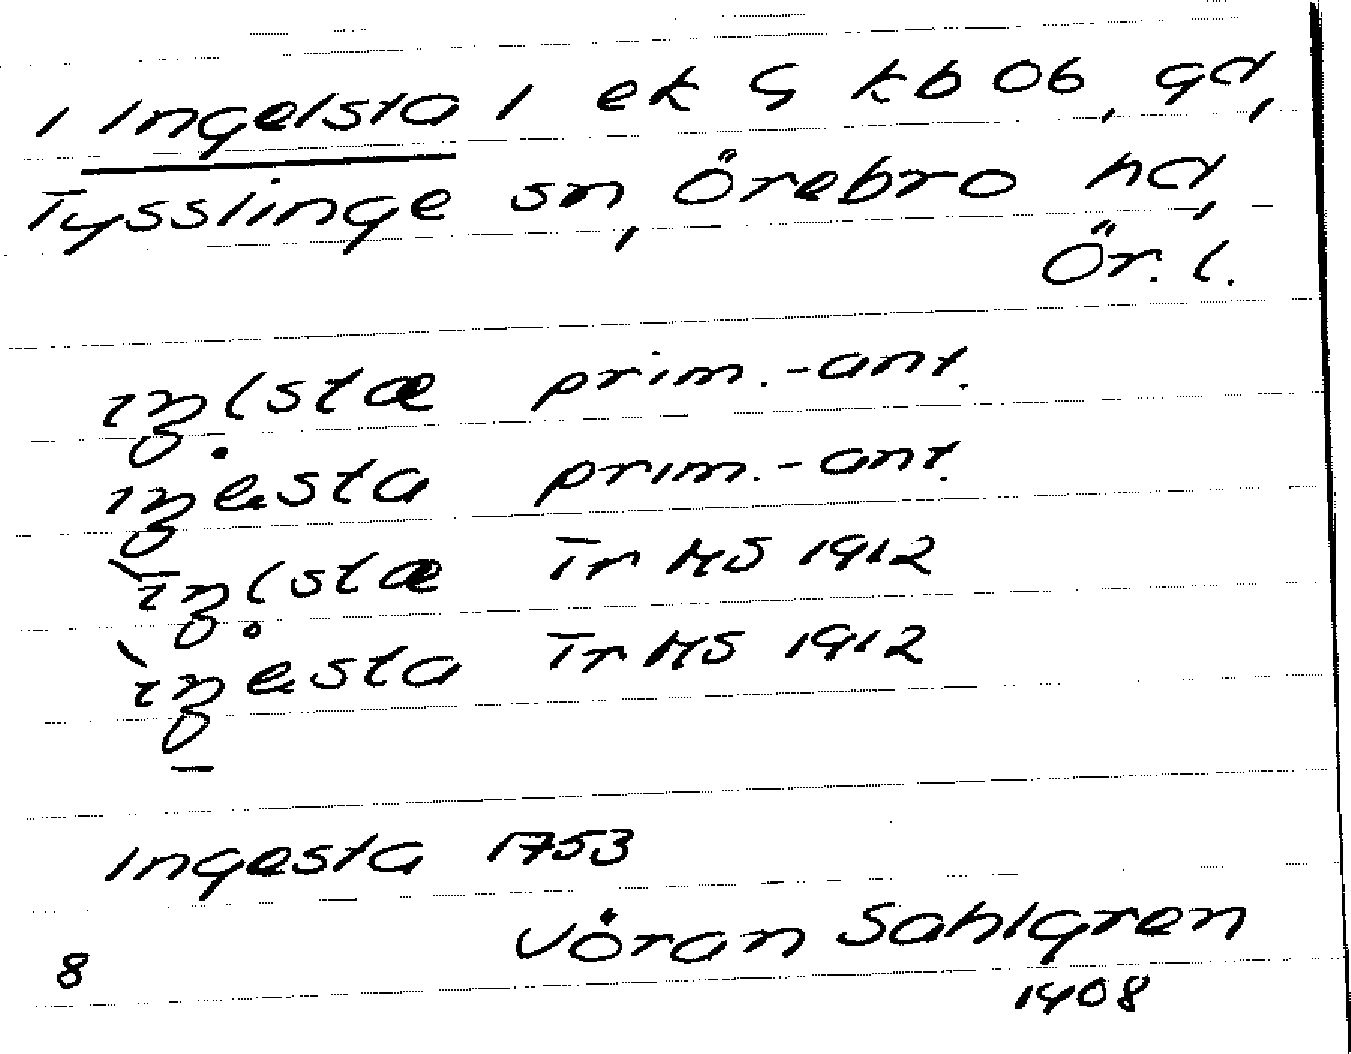 , Ingelsta 1 ek G kb 06, gd,
Tysslinge sn, Örebro hd,
Ör. l.
ɪŋl̥stæ prim.-ant.
ɪŋesta prim.-ant.
ˋɪŋl̥stæ Tr HS 1912
ˋɪŋesta Tr HS 1912
Ingesta 1753
Jöran Sahlgren
8
1908